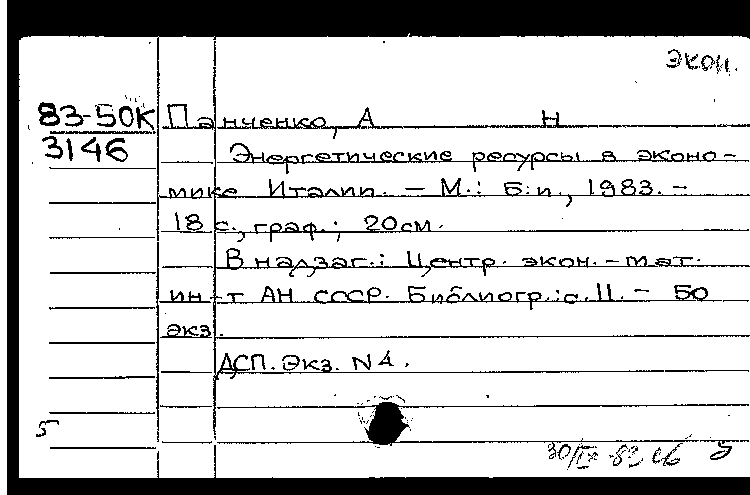 экон.
83-50К Панченко, А Н
3146 Энергетические ресурсы в эконо-
мике Италии. - М.: Б.и., 1983. -
18 с., граф.; 20см.
В надзаг.: Центр. экон.-мат.
ин-т АН СССР. Библиогр.: с.11. - 50
экз.
ДСП. Экз. N4.
5
30/IX-83